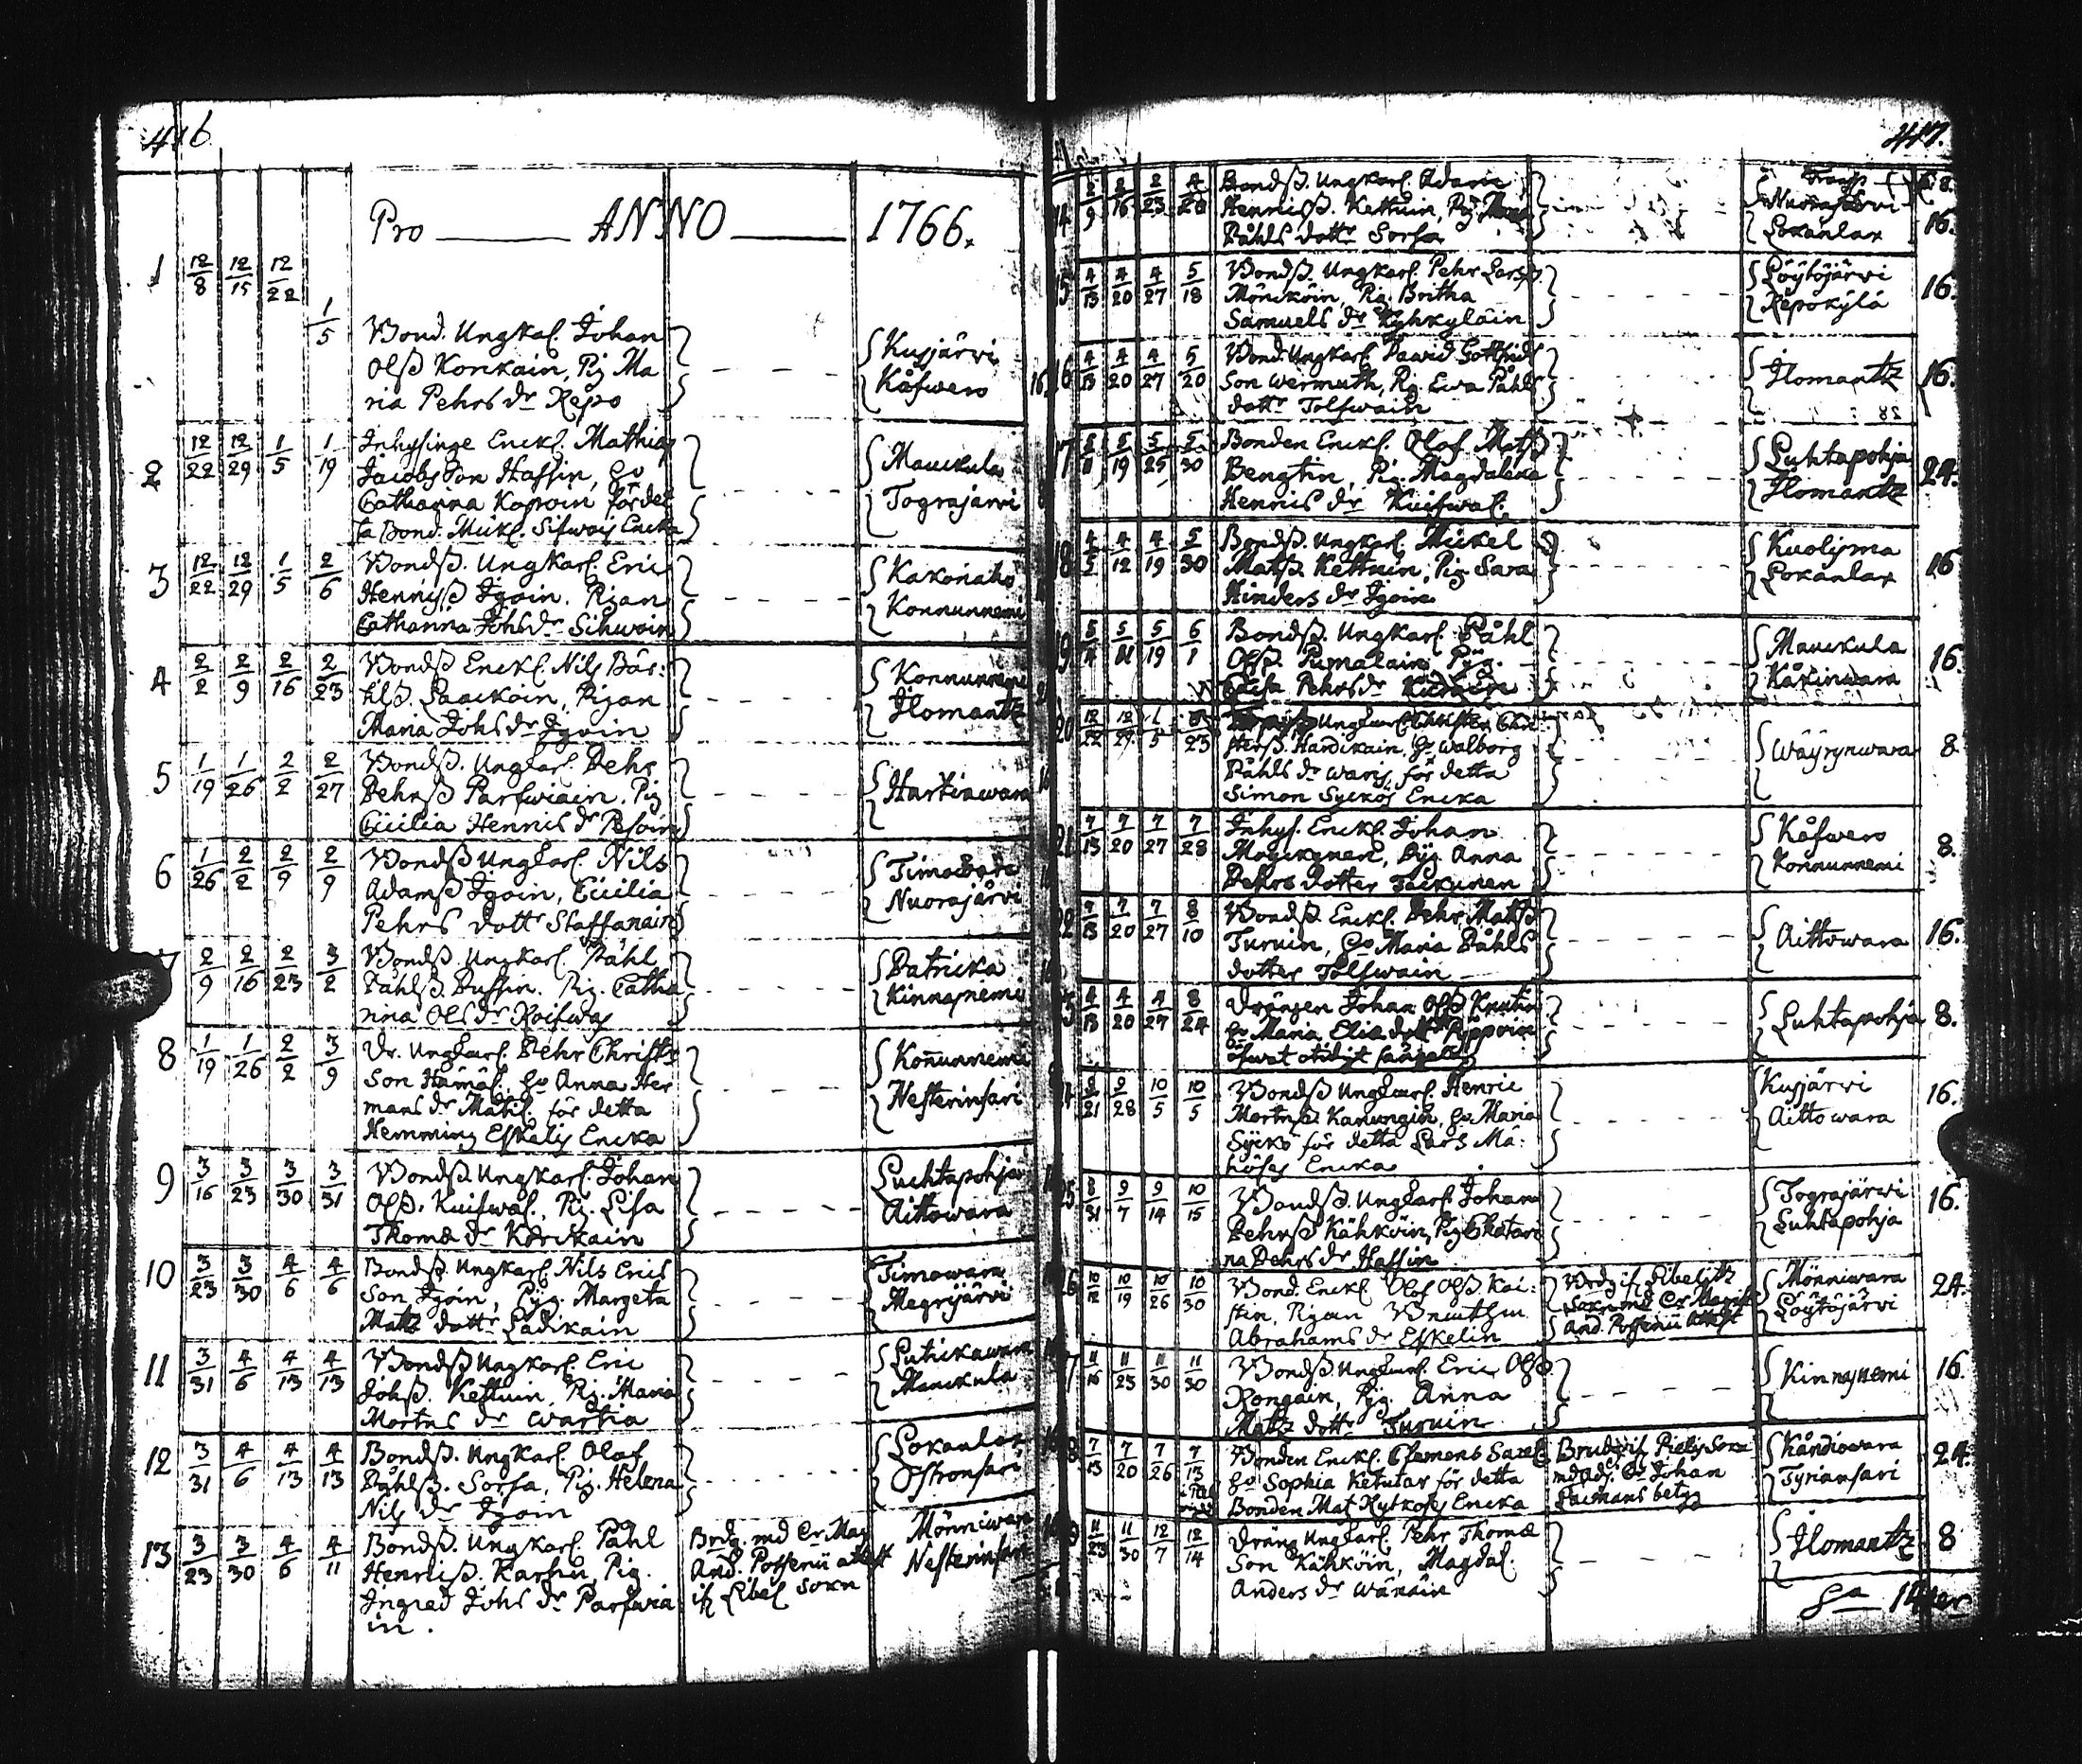 416.
Pro ANNO 1766.
1 12/8 12/15 12/22 1/5
Bond. Ungkal. Johan
Olss Konkain, Pig Ma
ria Pehrs dr Repo
Kusjärvi
Kåfwero
16
2 12/22 12/29 1/5 1/19
Inhysinge Enckl. Mathias
Jacobs Son Hassin, Ho
Catharina för det
ta Bond. Mick. Encka
Mauckula
Tograjärvi
3 12/22 12/29 1/5 2/6
Bondss. Ungkarl. Eric
Henriss Igoin. Pigan
Catharina Johs dr Sihwoin
Kakonaho
Konnunnemi
4 2/2 2/9 2/16 2/23
Bondss Enckl. Nils Bär:
tilss. Laackoin, Pigan
Maria Johs dr Igoin
Konnunnemi
Ilomantz
5 1/19 1/26 2/2 2/27
Bondss. Ungkarl. Pehr
Pehrss Parfwiain. Pig
Cicilia Henrics dr Pesoin
Hurtinwara
6 1/26 2/2 2/9 2/9
Bondss Ungkarl. Nils
Adamss Igoin, Cicilia
Pehrs dottr Staffanain
Timowara
Nuorajärvi
2/9 2/16 2/23 3/2
Bondss. Ungkarl. Påhl
Påhlss. Pussin. Pig. Catha
rina Ols dr Roifwas
Patricka
Kinnasniemi
8 1/19 1/26 2/2 3/9
Dr. Ungkarl. Pehr Christr
Son Hämäl., Ho Anna Her
mans dr Mätil. för detta
Hemming Eskelis Encka
Konnunnemi
Nesterinsari
9 3/16 3/23 3/30 3/31
Bondss. Ungkarl. Johan
Olss. Kuifwal., Pig. Lisa
Thomæ dr Körikain
Luchtapohja
Aittowara
10 3/23 3/30 4/6 4/6
Bondss. Ungkarl. Nils Erics
Son Igoin, Pyg. Margeta
Matz dottr Ladikain
Timowara
Megrijärvi
11 3/31 4/6 4/13 4/13
Bondss Ungkarl. Eric
Johss. Kettuin, Pig. Maria
Mortns dr Wartia
Lutickawara
Mauckula
12 3/31 4/6 4/13 4/13
Bondss. Ungkarl. Olof
Påhlss. Sorsa, Pig. Helena
Nils dr Igoin
Lokanlax
Oftronsari
13 3/23 3/30 4/6 4/11
Bondss. Ungkarl. Påhl
Henriss. Karhu, Pig.
Ingred Johs dr Parfwia
in.
Brdg. md Cr Mag
And. Possenii attest
if Libel Sokn
Mönniwara
Nesterinsari
417.
2/9 2/16 2/23 4/20
Bondss. Ungkarl. Adam
Henriss. Kettuin, Pig
Påhls dottr Sorsa
Nuorajärvi
Lokanlax
16.
4/13 4/20 4/27 5/18
Bondss. Ungkarl. Pehr Larss
Möncköin, Pig. Britha
Samuels dr Kyhkyläin
Löytöjärvi
Repokylä
16.
4/13 4/20 4/27 5/20
Bond. Ungkarl. Dawid Gottfrids
Son Wermuth, Pig. Ewa Påhls
dottr Tolfwain
Ilomantz
16.
5/11 5/19 5/25 5/30
Bonden Enckl. Olof Matss
Bengtin, Pig. Magdalena
Henrics dr Kuifwal.
Luhtapohja
Ilomantz
24.
4/5 4/12 4/19 5/30
Bondss. Ungkarl. Mickel
Matss. Kettuin, Pig. Sara
Hinders dr Igoin
Kuolisma
Lokanlax
16
5/11 5/19 6/1
Bondss. Ungkarl. Påhl
Olss. Pumalain, Pyg.
Pehrs dr
Mauckula
Kåkinwara
16.
12/22 12/29 1/5 /23
Ungkarl. Christer Chri
sterss. Handikain, Ho Walborg
Påhls dr Waris för detta
Simon Syckös Encka
Wäyrynwara
8
7/13 7/20 7/27 7/28
Inhys. Enckl. Johan
Pyg. Anna
Pehrs dotter Tackunen
Kåfwero
Konnunnemi
8.
7/13 7/20 7/27 8/10
Bondss. Enckl. Pehr Matss
Turuin, Ho Maria Påhls
dotter Tolfwain
Aittowara
16.
4/13 4/20 4/27 8/24
Drängen Johan Olss
Ho Maria Elia dottr
Luhtapohja
8.
9/21 9/28 10/5 10/5
Bondss Ungkarl. Henric
Mortnss Kanungin, Ho Maria
Syckö för detta Lars Mä:
höses Encka
Kusjärvi
Aittowara
16.
8/31 9/7 9/14 10/15
Bondss. Ungkarl. Johan
Pehrss Kähköin, Pig Chatari
na Pehrs dr Hassin
Tograjärvi
Luhtapohja
16.
10/12 10/19 10/26 10/30
Bond. Enckl. Olof Olss. Kai:
stin, Pigan
Abrahams dr Eskelin
Brdg if Libelitz
Sokn md Cr Magist
And. Possenii Attest
Mönniwara
Löytöjärvi
24.
11/16 11/23 11/30 11/30
Bondss. Ungkarl. Eric Olss
Rongain, Pig. Anna
Matz dottr Turuin
Kinnasnemi
16.
7/13 7/20 7/26 7/13
Bonden Enckl. Clemens
Ho Sophia Ketutar för detta
Bonden Mat. Kytkoses Encka
Brudg if Pielis Sokn
md Adj. Dr Johan
Laimans betyg
Kåndiowara
Tyriansari
24.
11/23 11/30 12/7 12/14
Dräng Ungkarl. Pehr Thomæ
Son Kähköin, Magdal.
Anders dr Wänäin
Ilomantz
8